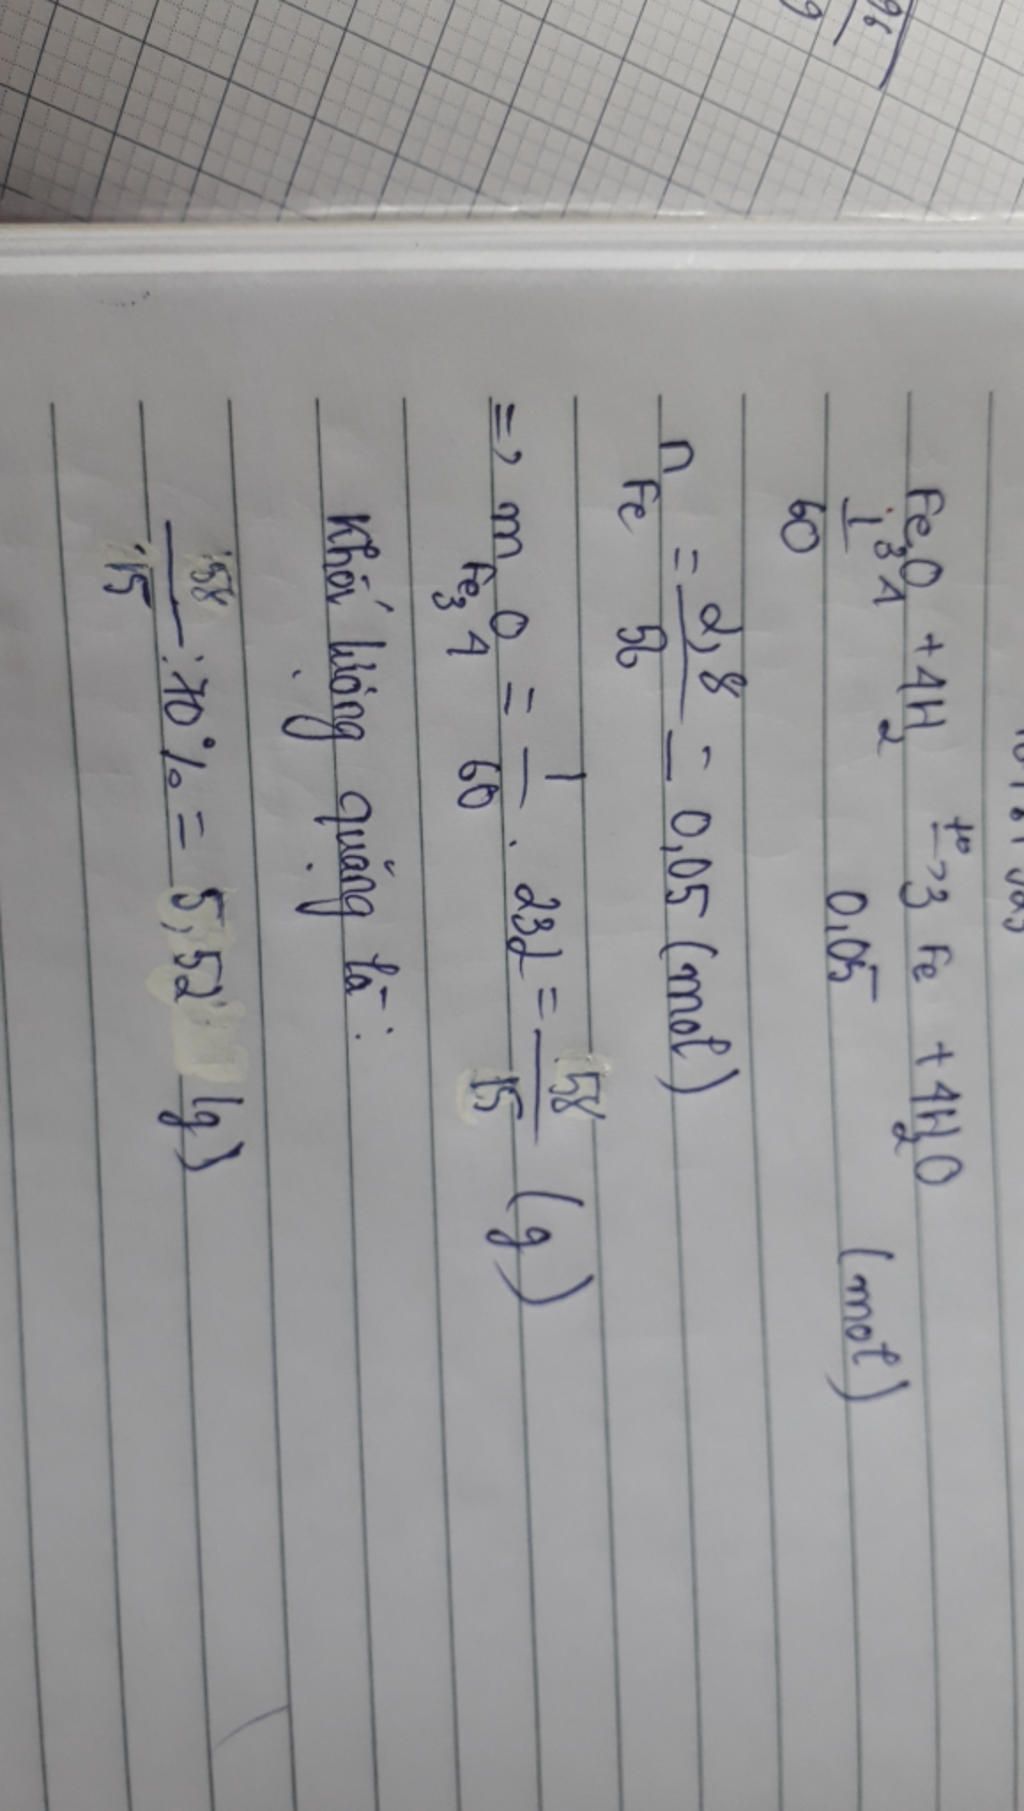 Fe3O4 + 4H2 t°→ 3Fe + 4H2O
1/60 0,05 (mol)
nFe = 2,8/56 = 0,05 (mol)
=> mFe3O4 = 1/60 . 232 = 58/15 (g)
Khối lượng quặng là:
58/15 : 70% = 5,52 (g)